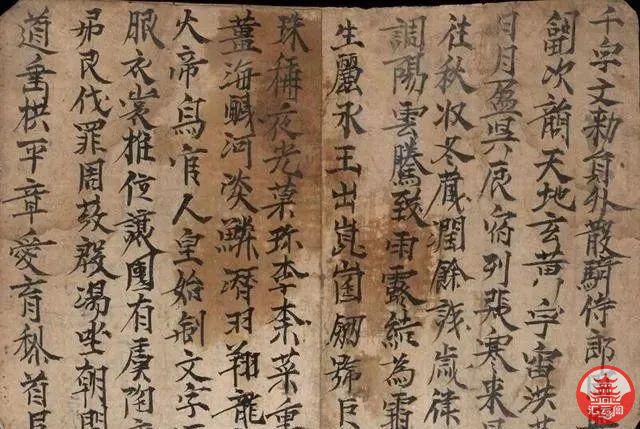 千字文勅員外散騎侍郎
嗣次韻天地玄黃宇宙洪荒
日月盈昃辰宿列張寒来
往秋収冬蔵潤餘歲律
調陽雲騰致雨露結為霜
生麗水玉出崑崗劒號巨
珠稱夜光菓珎李柰菜重
薑海醎河淡鱗潛羽翔龍
火帝鳥官人皇始制文字
服衣裳推位讓國有虞陶
弔民伐罪周發殷湯坐朝問
道垂拱平章愛育黎首臣
汇云阁